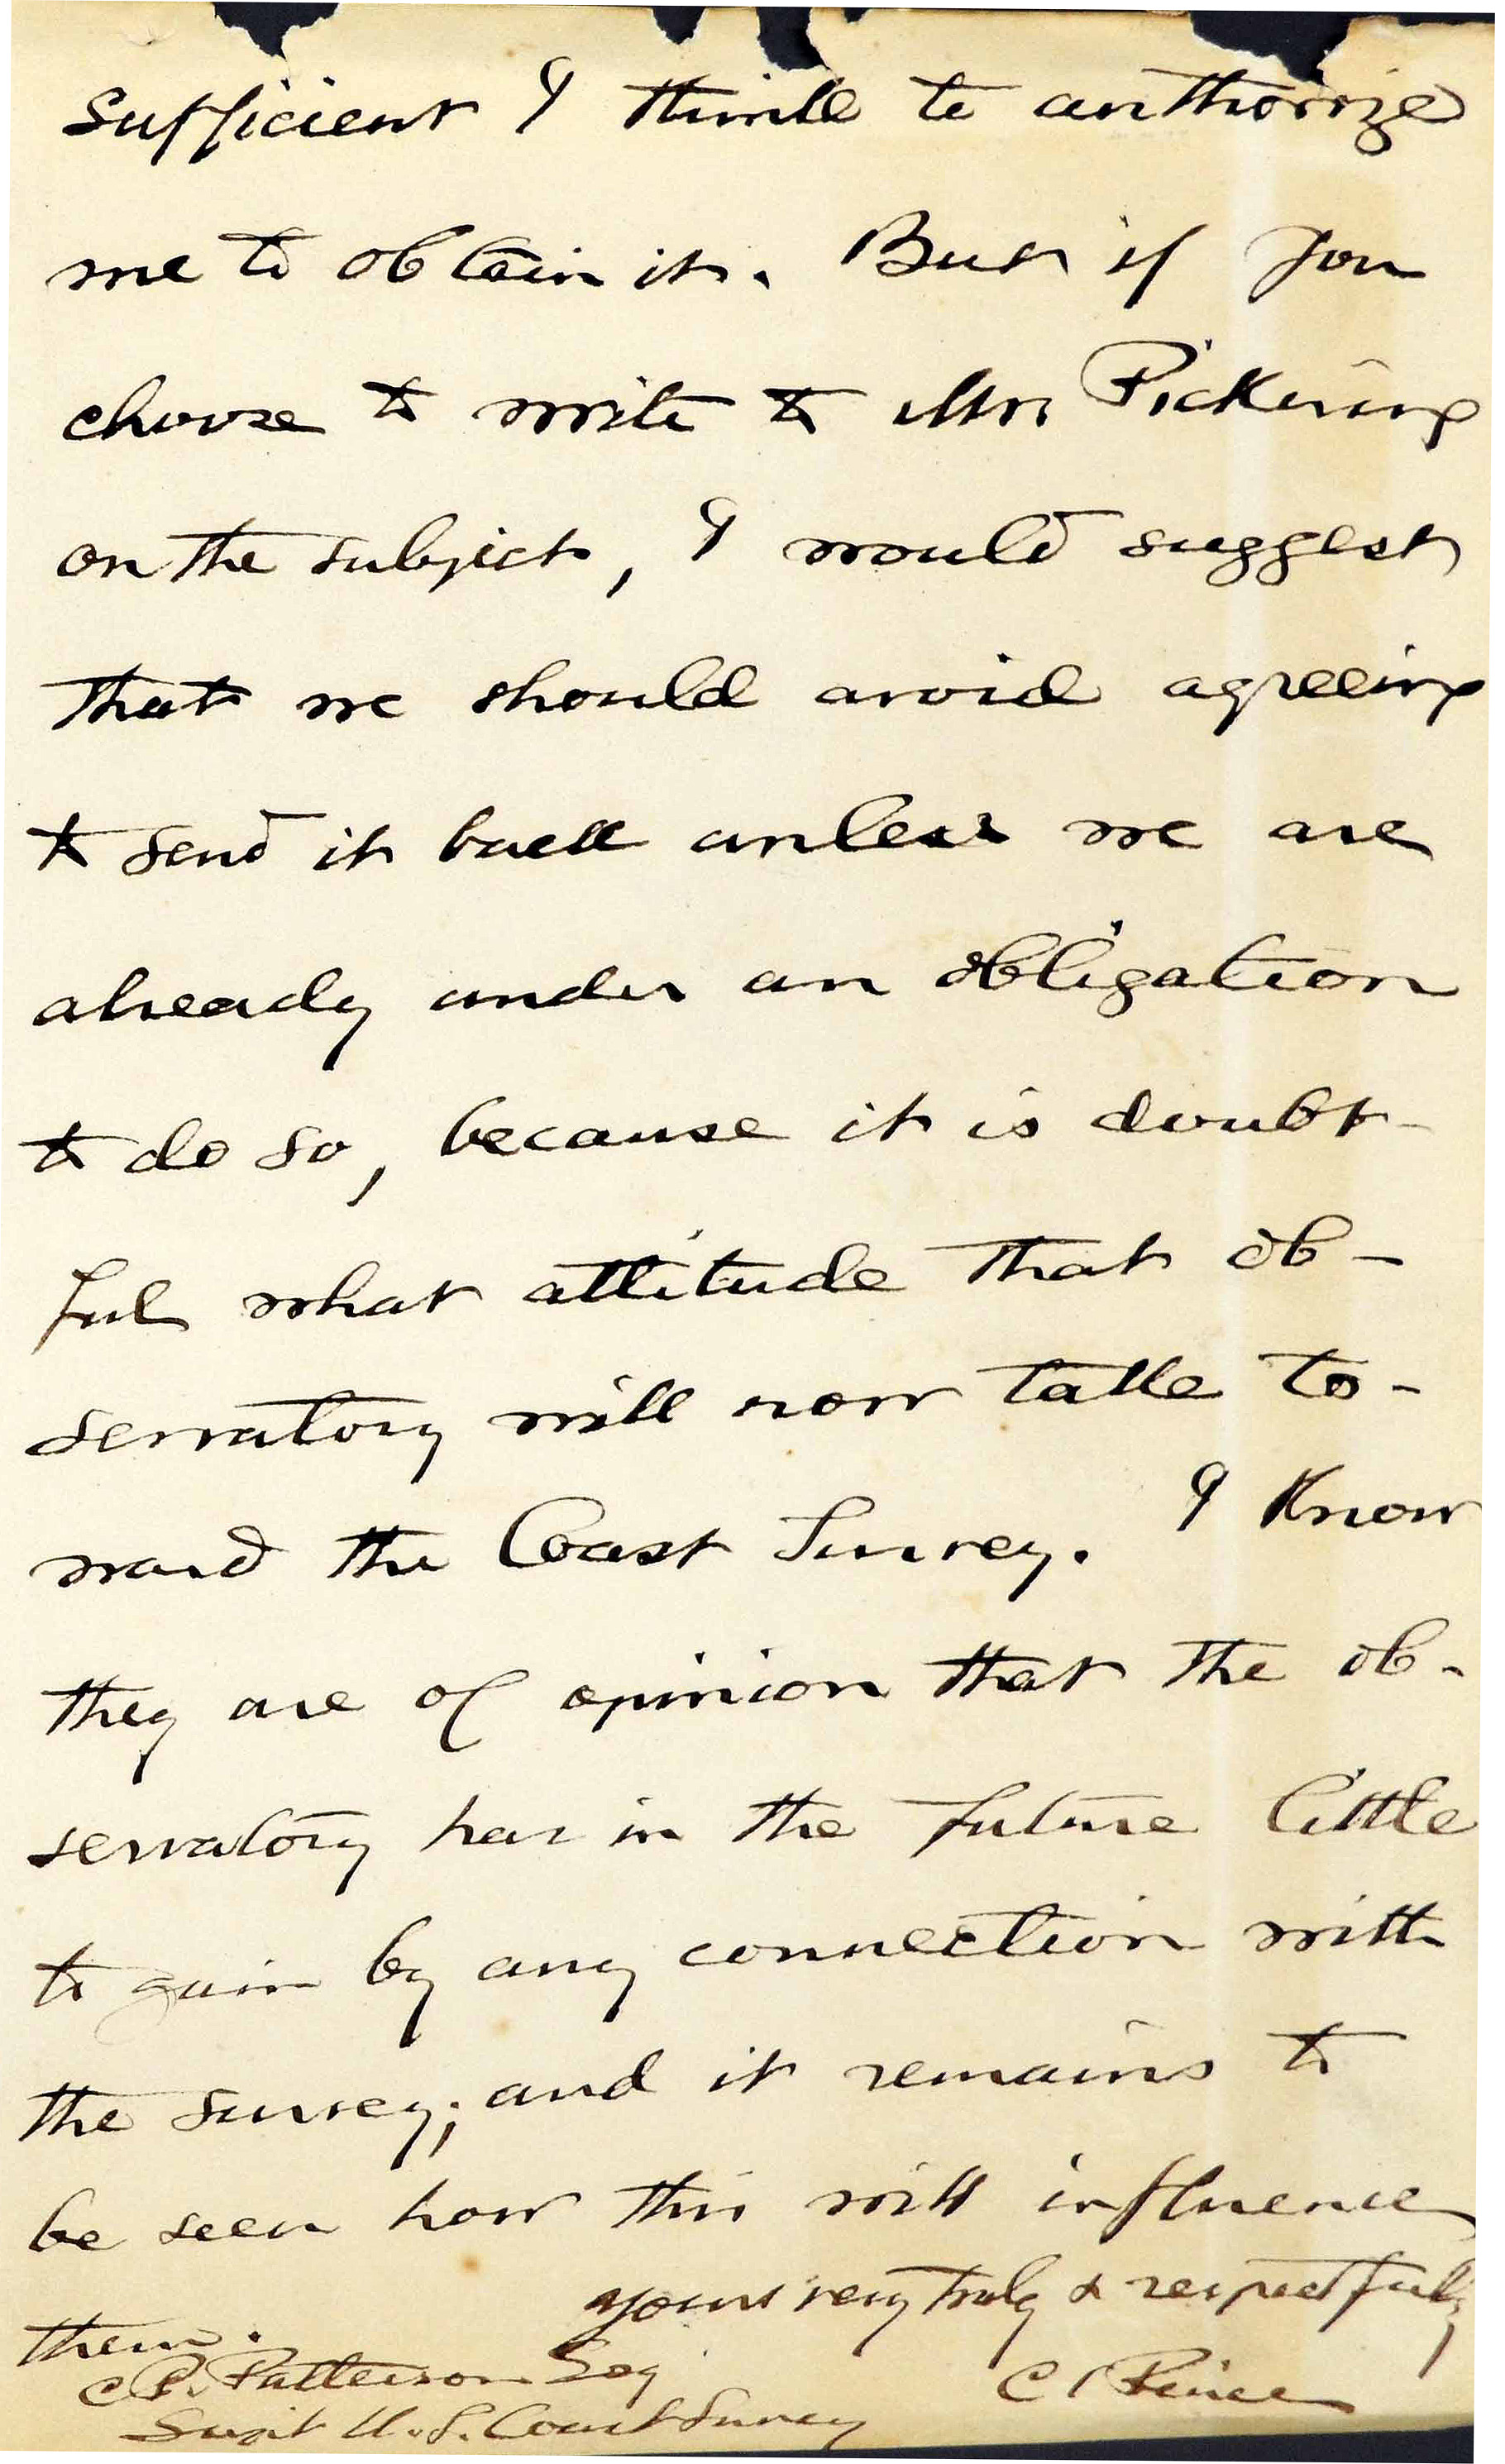 sufficient I think to authorize
me to obtain it. But if you
choose to write to Mr Pickering
on the subject, I would suggest
that we should avoid agreeing
to send it back unless we are
already under an obligation
to do so, because it is doubt-
ful what attitude that ob-
servatory will now take to-
ward the Coast Survey. I know
they are of opinion that the ob-
servatory has in the future little
to gain by any connection with
the survey; and it remains to
be seen how this will influence
them.
yours very truly & respectfully
C S Peirce
C. P. Patterson Esq
Supt U.S. Coast Survey